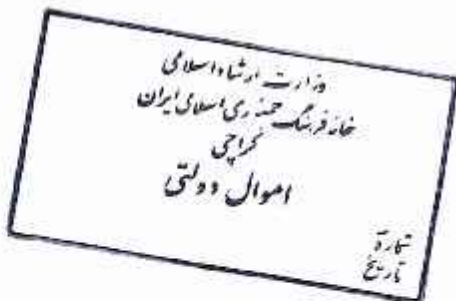 وزارت ارشاد اسلامی
خانه فرهنگ جمهوری اسلامی ایران
کراچی
اموال دولتی
شماره
تاریخ